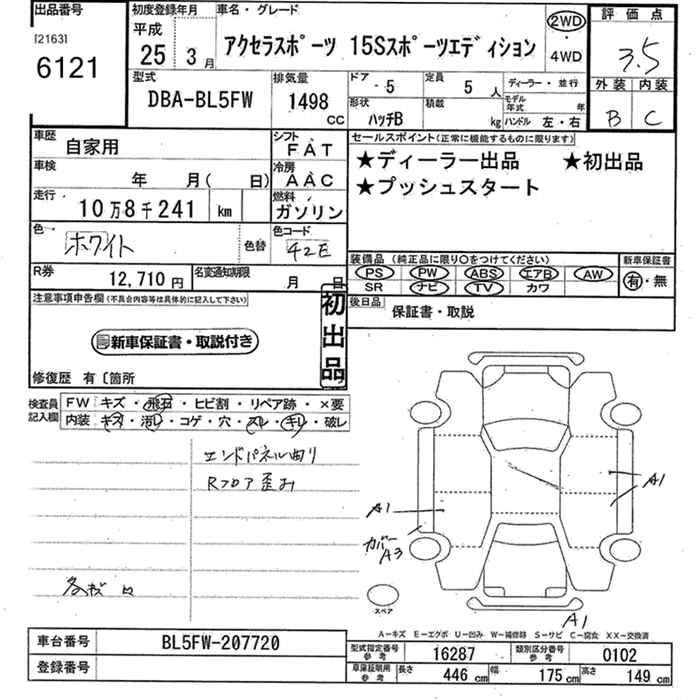 出品番号
[2163]
6121
初度登録年月
平成
25年 3月
車名・グレード
アクセラスポーツ 15Sスポーツエディション
2WD
・
4WD
評価点
3.5
外装 内装
B C
型式
DBA-BL5FW
排気量
1498
CC
ドア・5
形状
ハッチB
定員 5人
積載 kg
ディーラー・並行
モデル年式 年
ハンドル 左・右
車歴 自家用
シフト FAT
車検 年 月( 日)
冷房 AAC
走行 10万8千241 km
燃料 ガソリン
色 ホワイト 色替
色コード 42E
R券 12,710円
名変通知期限 月 日
セールスポイント(正常に機能するものに限ります)
★ディーラー出品 ★初出品
★プッシュスタート
装備品(純正品に限り○をつけてください)
PS PW ABS エアB AW
SR ナビ TV カワ
新車保証書
有・無
後日品
保証書・取説
注意事項申告欄(不具合内容等は具体的に記入して下さい)
新車保証書・取説付き
初出品
修復歴 有〔箇所
検査員記入欄
FW キズ・飛石・ヒビ割・リペア跡・×要
内装 キズ・汚れ・コゲ・穴・スレ・キレ・破レ
エンドパネル曲り
Rフロア歪み
A1
A1
カバー
A3
スペア
A1
A-キズ E-エグボ U-凹み W-補修跡 S-サビ C-腐食 XX-交換済
車台番号 BL5FW-207720
登録番号
型式指定番号参考 16287
類別区分番号参考 0102
車庫証明用参考 長さ 446cm 幅 175cm 高さ 149cm